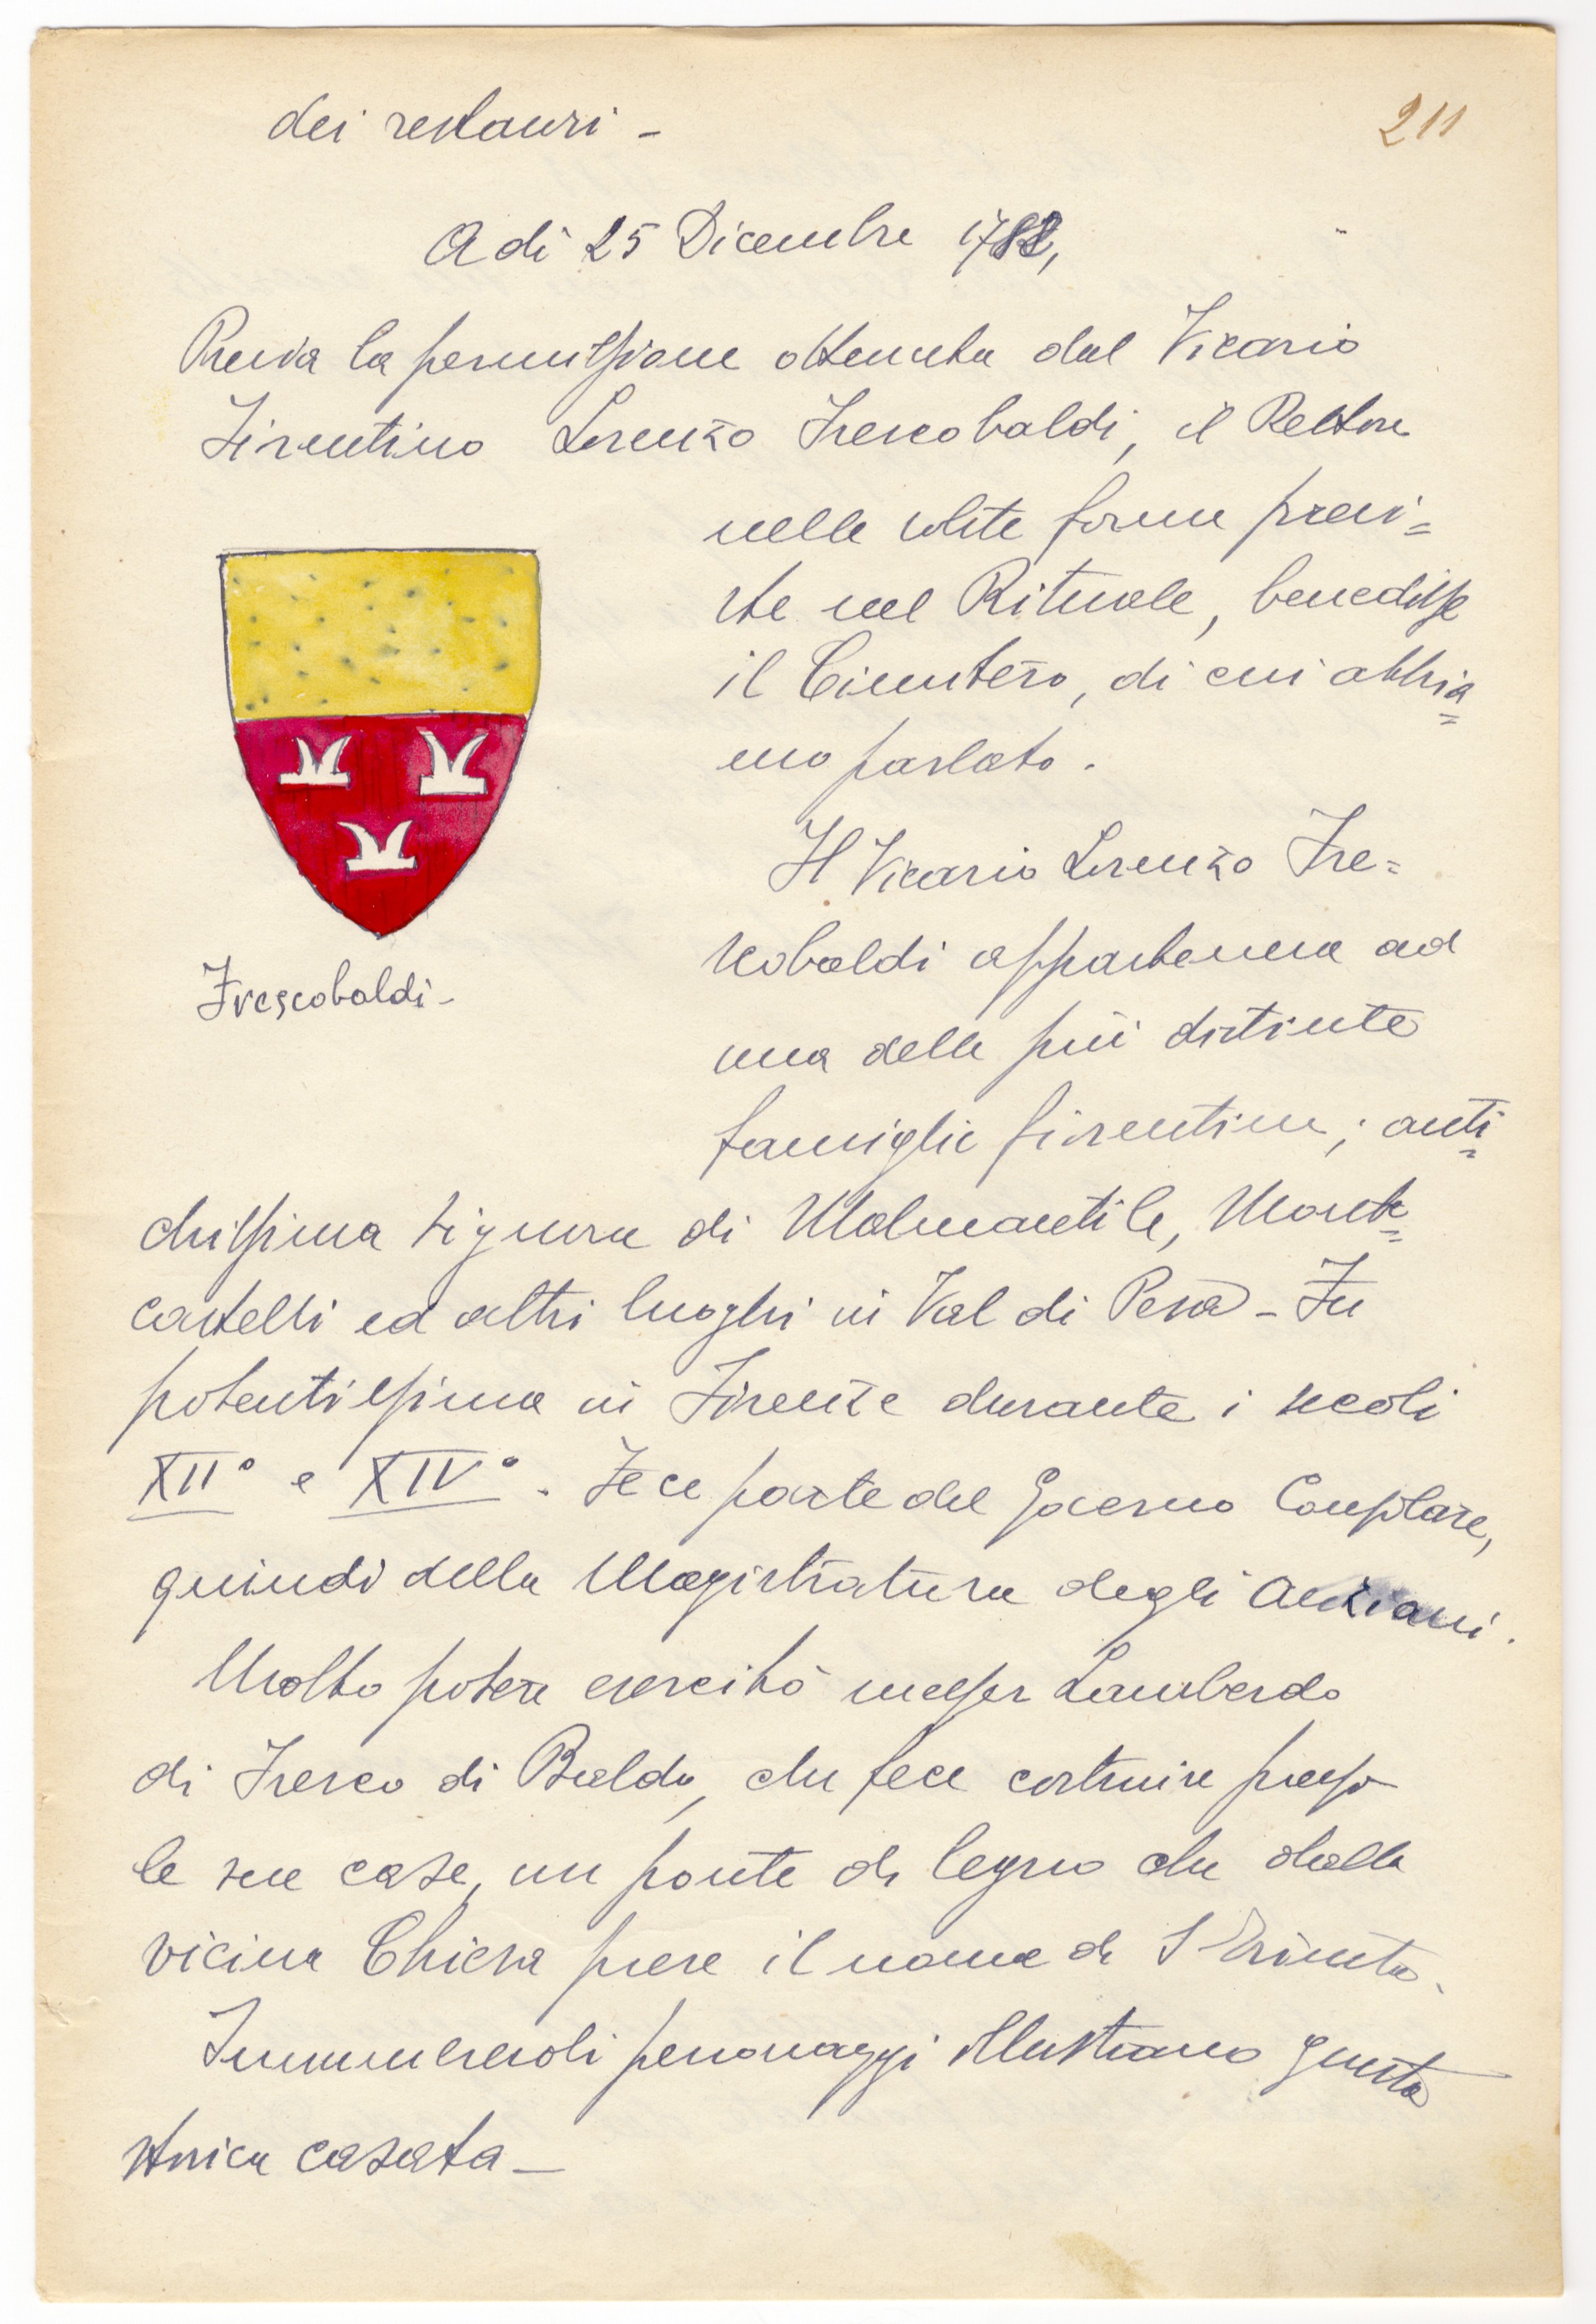 dei restauri -
211
A dì 25 Dicembre 1782,
Previa la permissione ottenuta dal Vicario
Fiorentino Lorenzo Frescobaldi, il Rettore
nelle solite forme previ=
ste nel Rituale, benedisse
il Cimitero, di cui abbia=
mo parlato.
Il Vicario Lorenzo Fre=
scobaldi apparteneva ad
una delle più distinte
famiglie fiorentine; anti=
Frescobaldi-
chissima signora di Malmantile, Monte=
castelli ed altri luoghi in Val di Pesa - Fu
potentissima in Firenze durante i secoli
XII° e XIV°. Fece parte del Governo Consolare,
quindi della Magistratura degli Anziani.
Molto potere esercitò messer Lamberdo
di Fresco di Baldo, che fece costruire presso
le sue case, un ponte di legno che dalla
vicina Chiesa prese il nome di S Trinita.
Innumerevoli personaggi illustrano questa
storica casata -